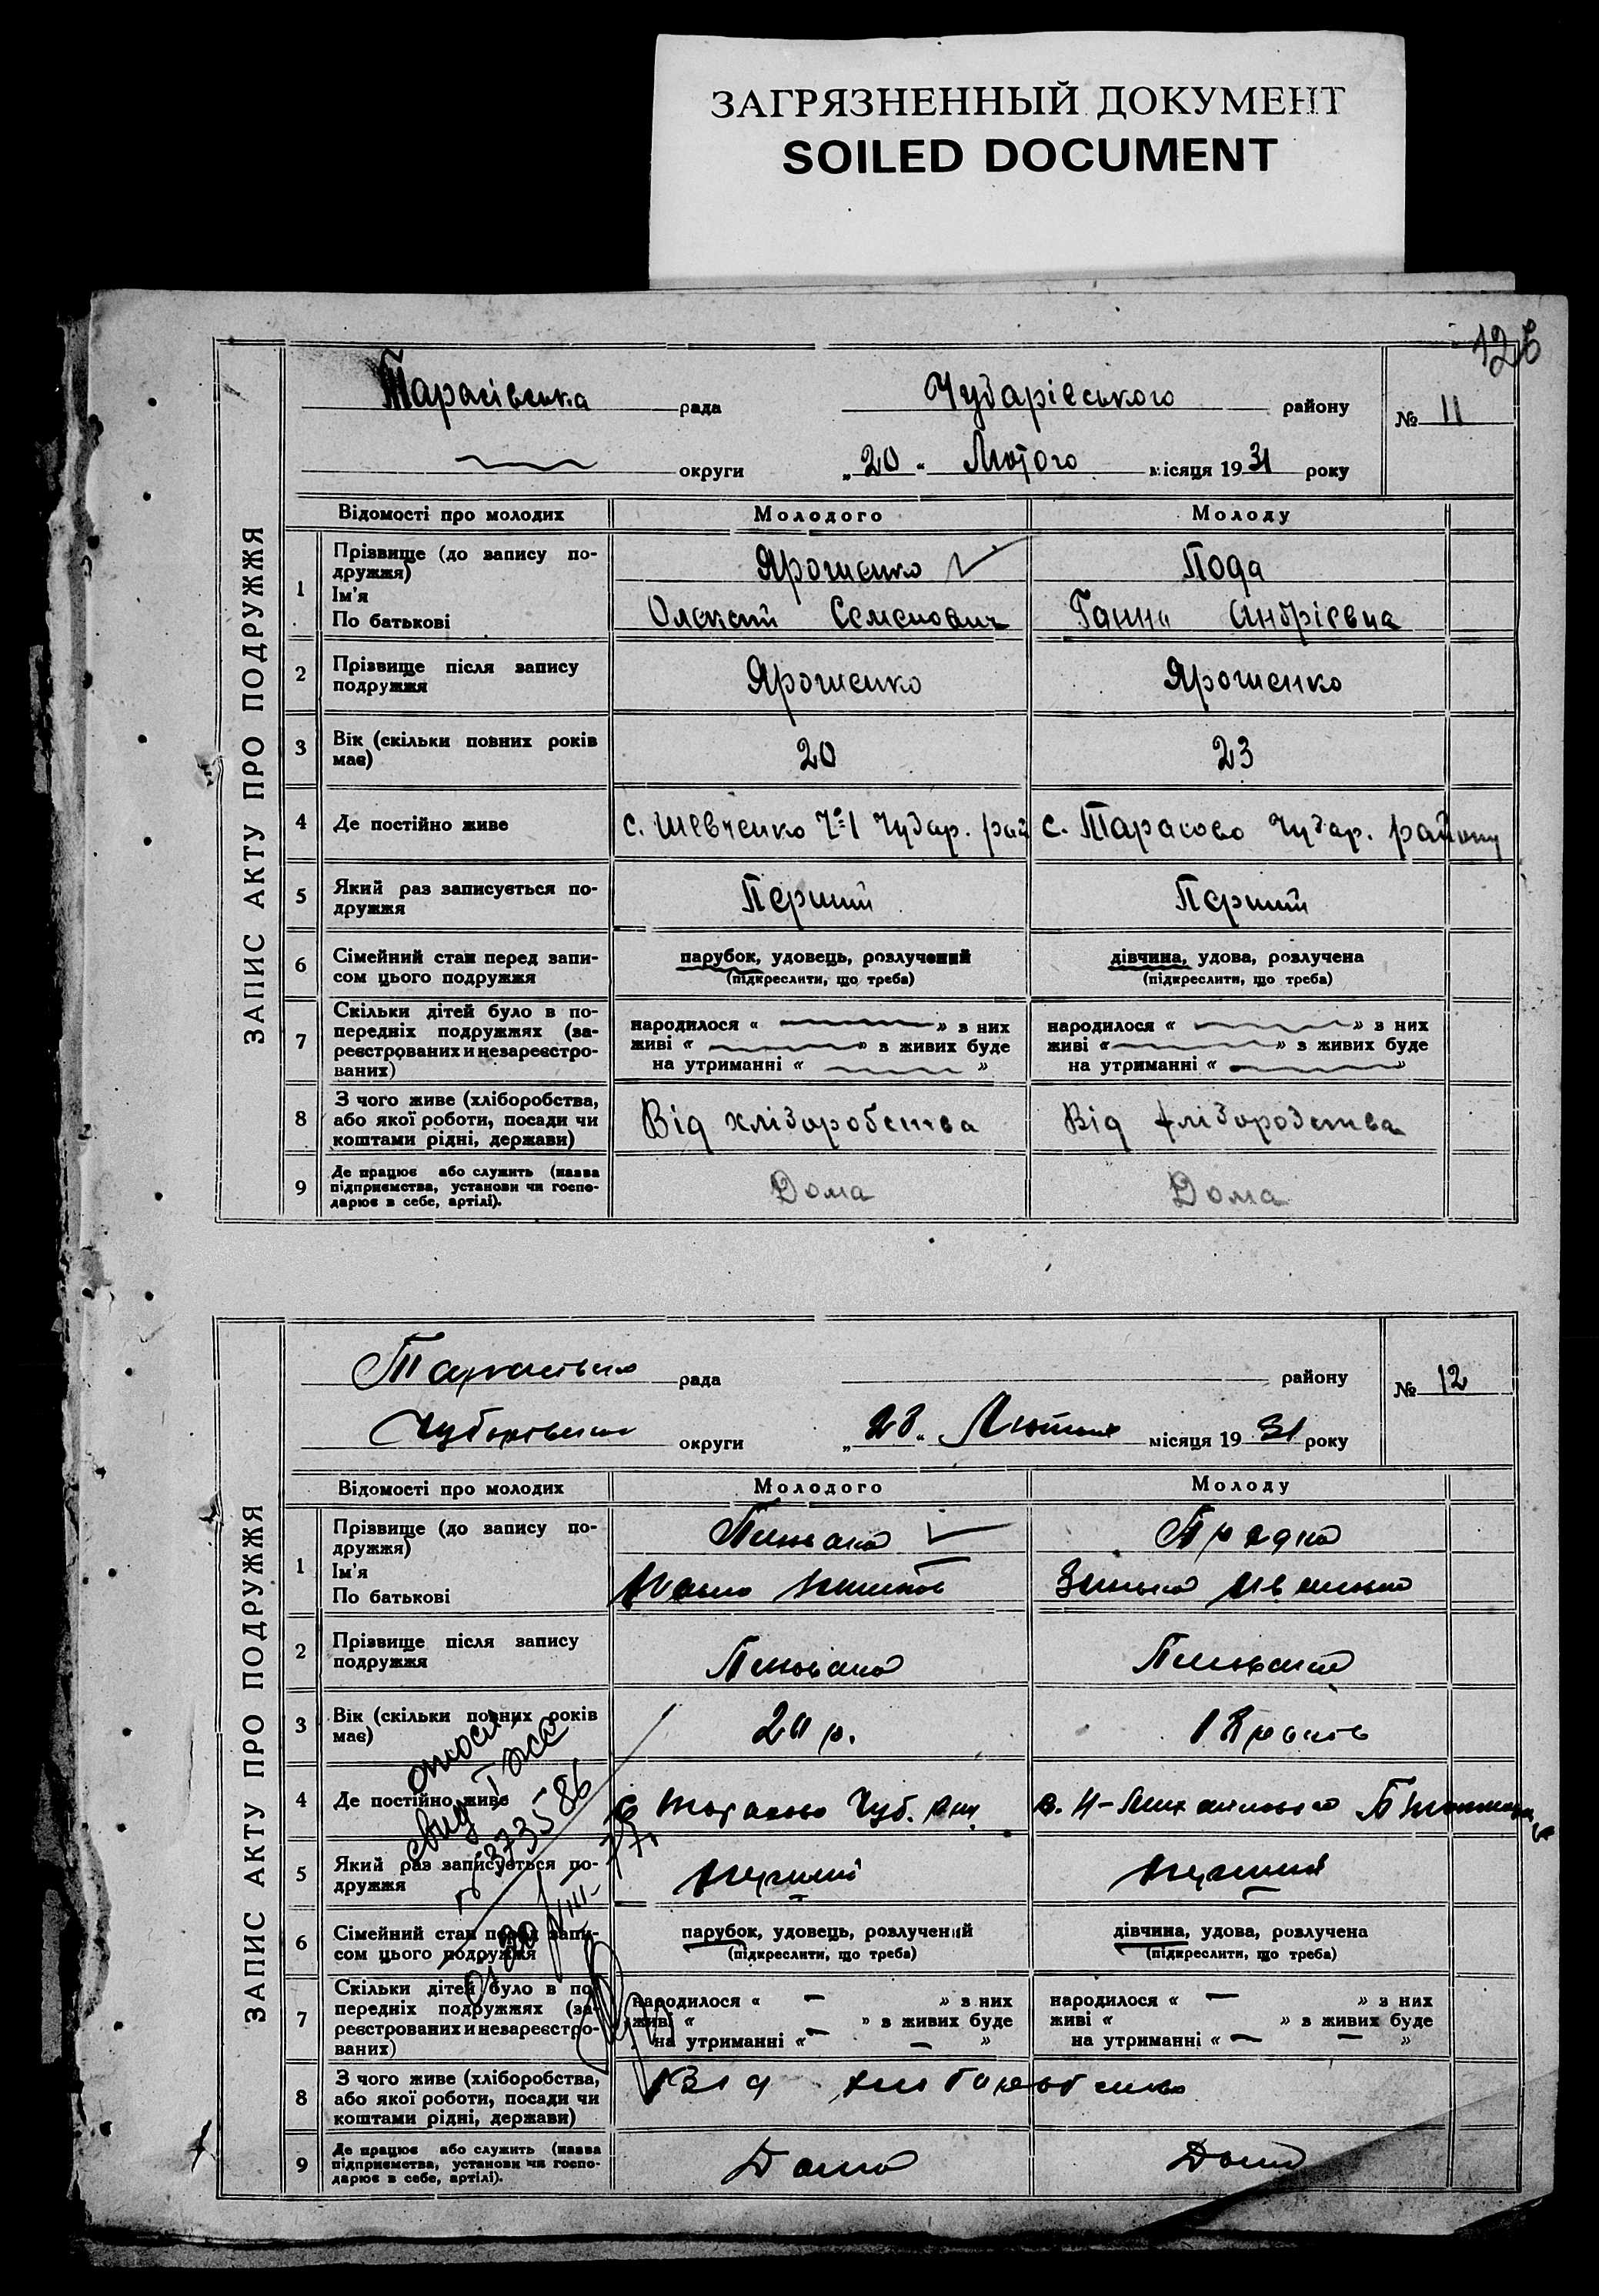 ЗАГРЯЗНЕННЫЙ ДОКУМЕНТ
SOILED DOCUMENT
126
ЗАПИС АКТУ ПРО ПОДРУЖЖЯ
Тарасівська рада Чубарівського району № 11
округи „20“ Лютого місяця 1931 року
Відомості про молодих Молодого Молоду
1 Прізвище (до запису по-
дружжя) Ярошенко Пода
Ім'я
По батькові Олексій Семенович Ганна Андрієвна
2 Прізвище після запису
подружжя Ярошенко Ярошенко
3 Вік (скільки повних років
має) 20 23
4 Де постійно живе с. Шевченко №1 Чубар. рай с. Тарасово Чубар. району
5 Який раз записується по-
дружжя Перший Перший
6 Сімейний стан перед запи-
сом цього подружжя
парубок, удовець, розлучений дівчина, удова, розлучена
(підкреслити, що треба) (підкреслити, що треба)
7 Скільки дітей було в по-
передніх подружжях (за-
реєстрованих и незареєстро-
ваних)
народилося « » з них народилося « » з них
живі « » з живих буде живі « » з живих буде
на утриманні « » на утриманні « »
8 З чого живе (хліборобства,
або якої роботи, посади чи
коштами рідні, держави) Від хліборобства Від хліборобства
9 Де працює або служить (назва
підприємства, установи чи госпо-
дарює в себе, артілі). Дома Дома
ЗАПИС АКТУ ПРО ПОДРУЖЖЯ
рада району № 12
округи „23“ місяця 1931 року
Відомості про молодих Молодого Молоду
1 Прізвище (до запису по-
дружжя)
Ім'я
По батькові
2 Прізвище після запису
подружжя
3 Вік (скільки повних років
має) р. 18 років
4 Де постійно живе Тарасово Чуб.
5 Який раз записується по-
дружжя перший перший
6 Сімейний стан перед запи-
сом цього подружжя
парубок, удовець, розлучений дівчина, удова, розлучена
(підкреслити, що треба) (підкреслити, що треба)
7 Скільки дітей було в по-
передніх подружжях (за-
реєстрованих и незареєстро-
ваних)
народилося « — » з них народилося « — » з них
живі « » з живих буде живі « » з живих буде
на утриманні « — » на утриманні « — »
8 З чого живе (хліборобства,
або якої роботи, посади чи
коштами рідні, держави) Від хліборобства
9 Де працює або служить (назва
підприємства, установи чи госпо-
дарює в себе, артілі). Дома Дома